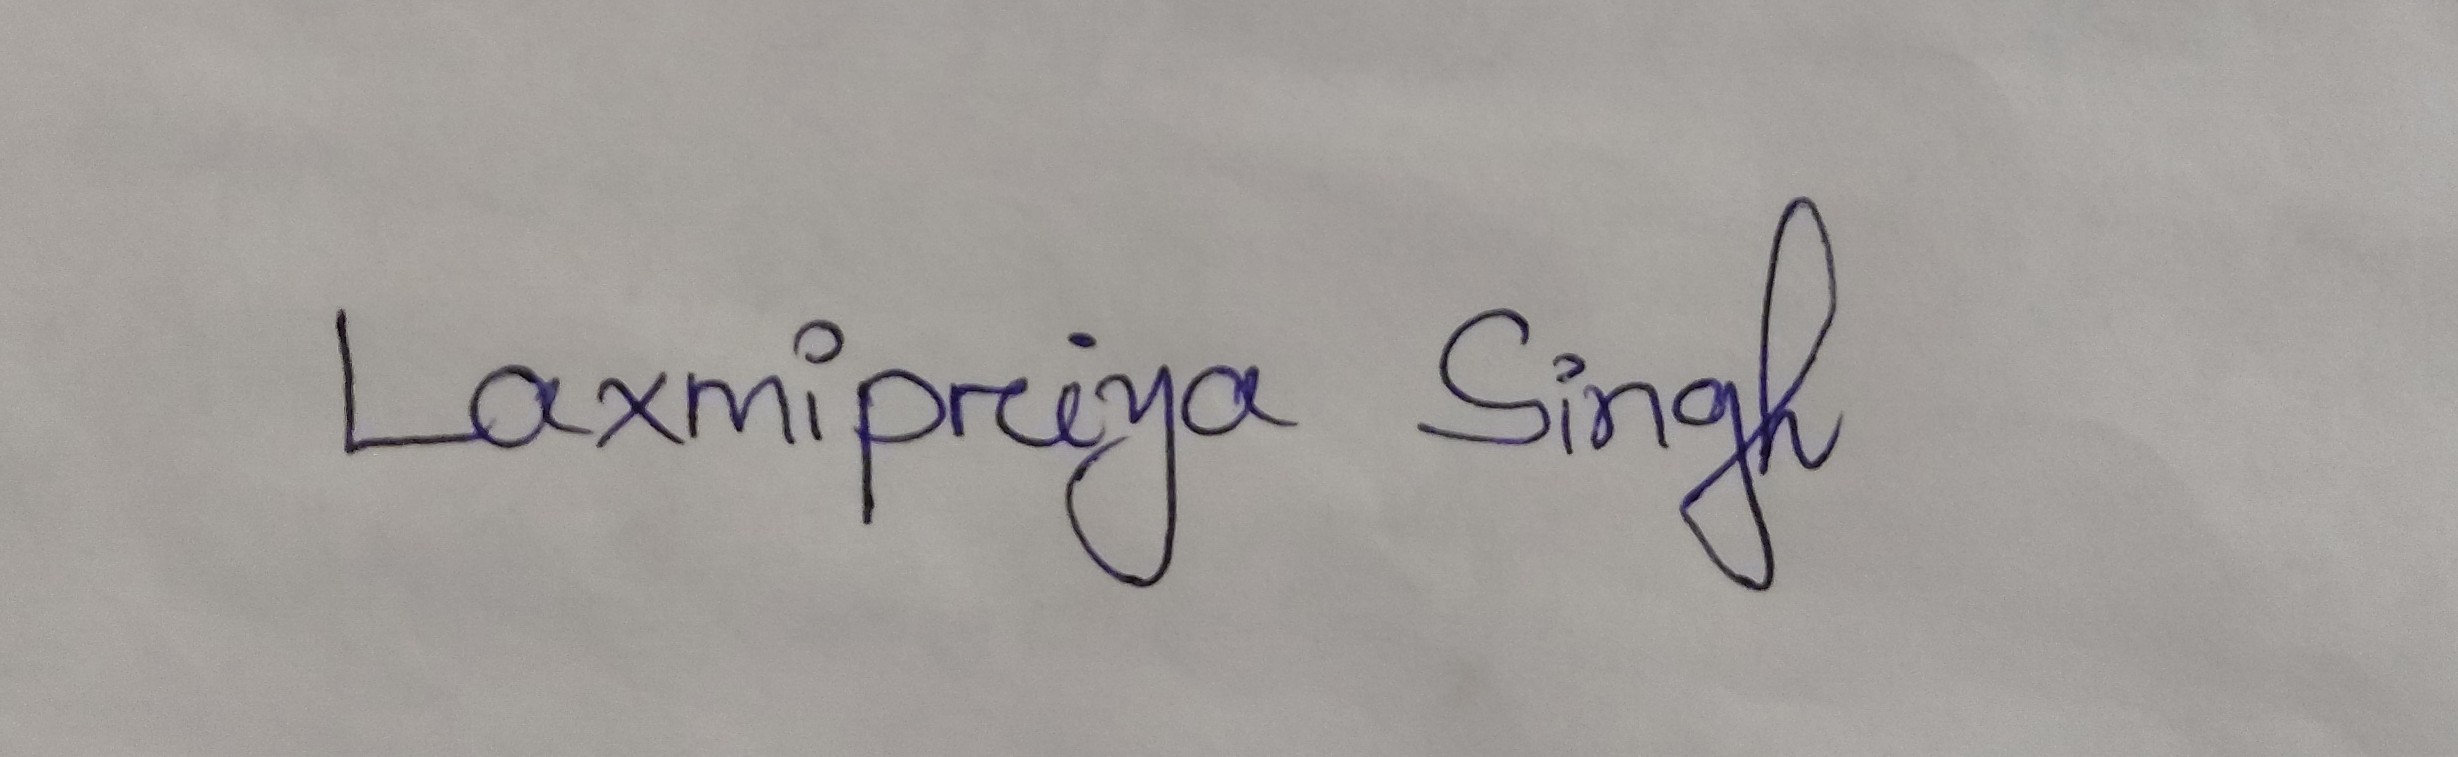 Laxmipriya Singh